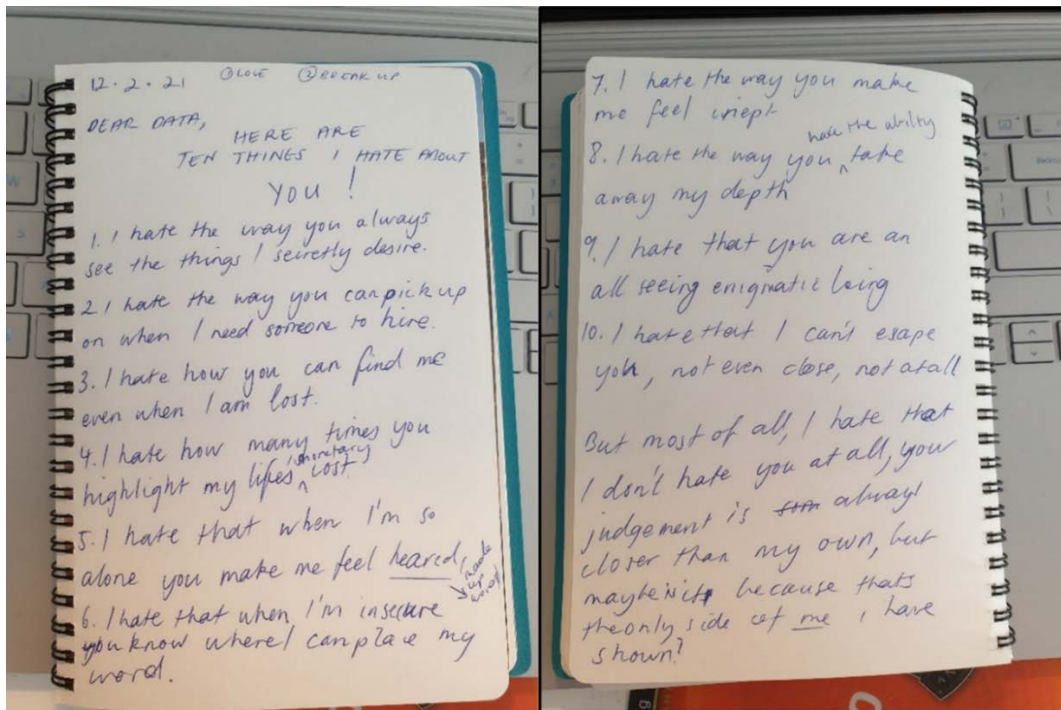 12.2.21 ①LOVE ②BREAK UP
DEAR DATA,
HERE ARE
TEN THINGS I HATE ABOUT
YOU!
1. I hate the way you always
see the things I secretly desire.
2. I hate the way you can pick up
on when I need someone to hire.
3. I hate how you can find me
even when I am lost.
4. I hate how many times you
highlight my lifes' monetary cost.
5. I hate that when I'm so
alone you make me feel heared,
made
up
word
6. I hate that when I'm insecure
you know where I can place my
word.
7. I hate the way you make
me feel inept
have the ability
8. I hate the way you take
away my depth
9. I hate that you are an
all seeing enigmatic being
10. I hate that I can't esape
you, not even close, not at all
But most of all, I hate that
I don't hate you at all, your
judgement is always
closer than my own, but
maybe its because thats
the only side of me I have
shown?